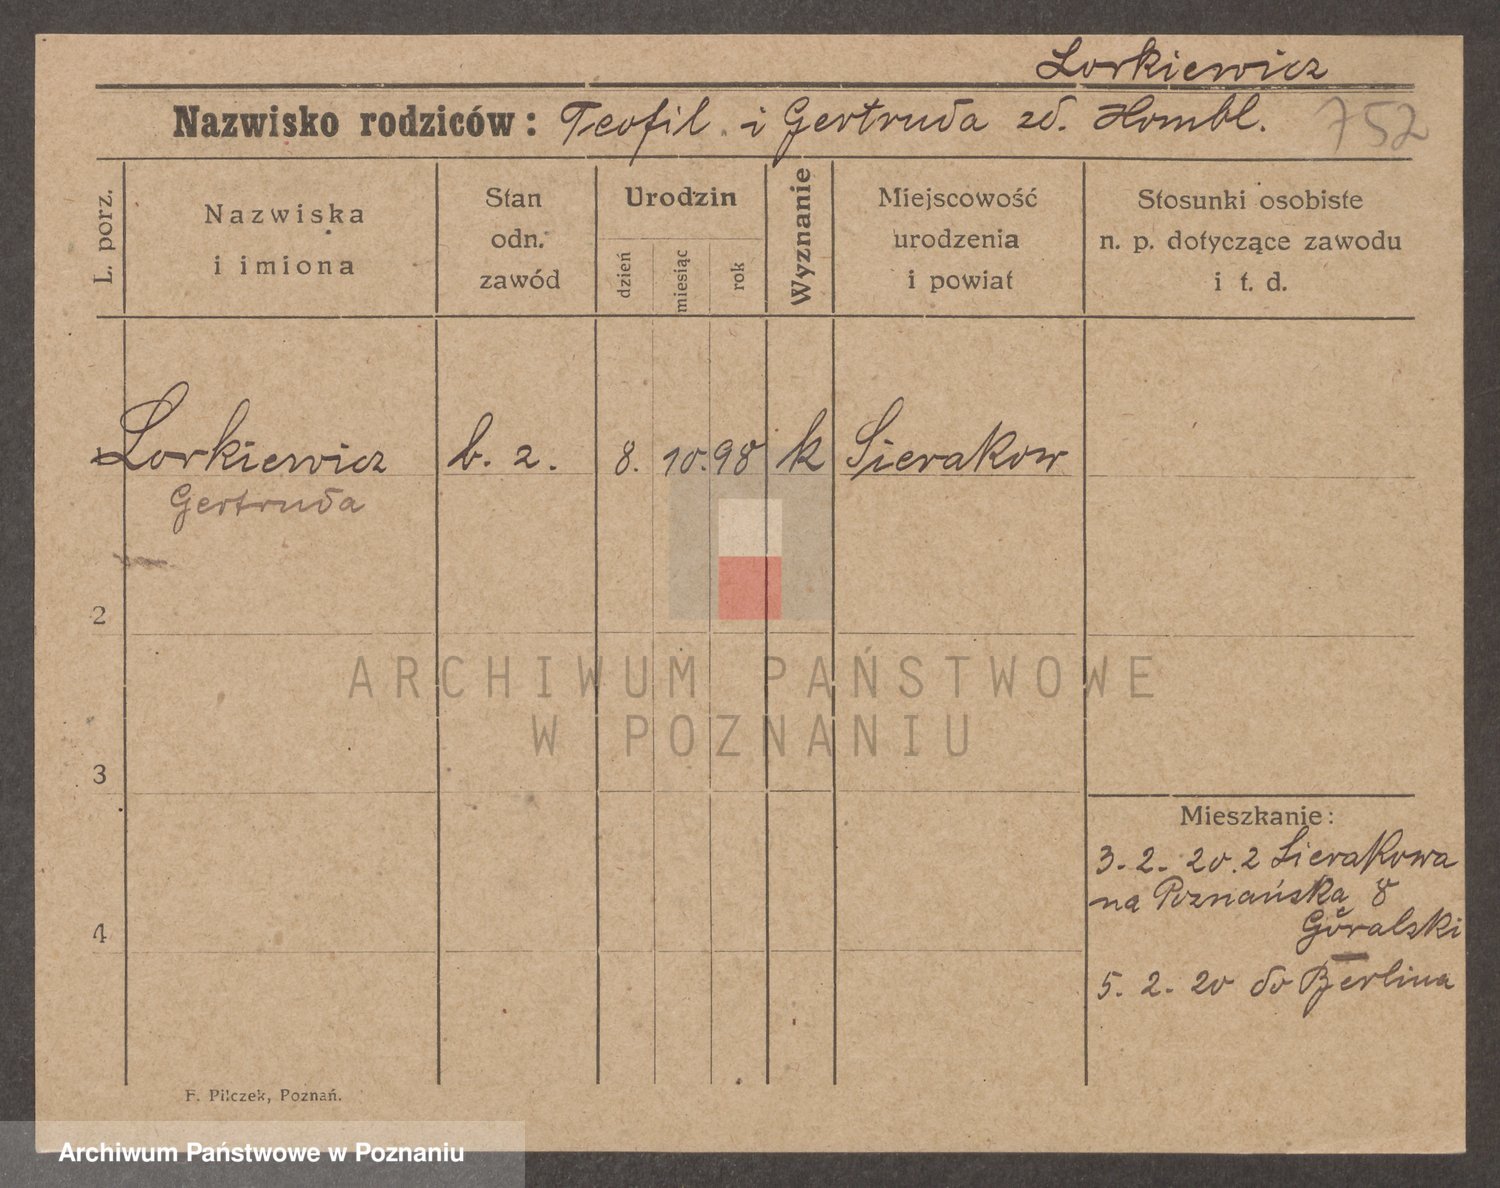 Lorkiewicz
Nazwisko rodziców: Teofil i Gertruda zd. Hombl. 752
L. porz.
Nazwiska
i imiona
Stan
odn.
zawód
Urodzin
dzień
miesiąc
rok
Wyznanie
Miejscowość
urodzenia
i powiat
Stosunki osobiste
n. p. dotyczące zawodu
i t. d.
Lorkiewicz b. z. 8. 10. 98 k Sierakow
Gertruda
2
3
4
Mieszkanie:
3. 2. 20. z Sierakowa
na Poznańska 8
Góralski
5. 2. 20 do Berlina
F. Pilczek, Poznań.
ARCHIWUM PAŃSTWOWE
W POZNANIU
Archiwum Państwowe w Poznaniu